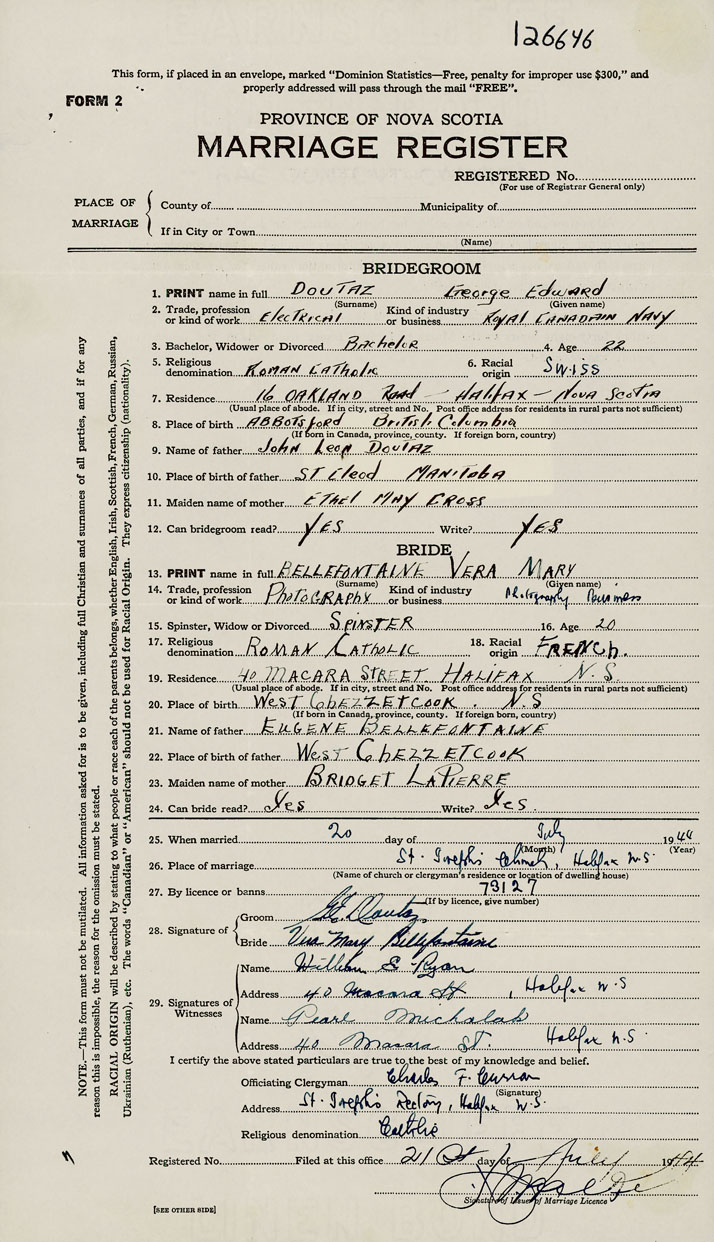 126646
This form, if placed in an envelope, marked "Dominion Statistics—Free, penalty for improper use $300," and
properly addressed will pass through the mail "FREE".
FORM 2
PROVINCE OF NOVA SCOTIA
MARRIAGE REGISTER
REGISTERED No.
(For use of Registrar General only)
PLACE OF MARRIAGE
County of Municipality of
If in City or Town
(Name)
BRIDEGROOM
1. PRINT name in full DOUTAZ George Edward
(Surname) (Given name)
2. Trade, profession or kind of work Electrical Kind of industry or business ROYAL CANADAIN NAVY
3. Bachelor, Widower or Divorced Bachelor 4. Age 22
5. Religious denomination ROMAN CATHOLIC 6. Racial origin Swiss
7. Residence 16 OAKLAND Road - HALIFAX - NOVA SCOTIA
(Usual place of abode. If in city, street and No. Post office address for residents in rural parts not sufficient)
8. Place of birth ABBOTSford British Columbia
(If born in Canada, province, county. If foreign born, country)
9. Name of father John Leon DOUTAZ
10. Place of birth of father ST Eleod MANITOBA
11. Maiden name of mother ETHEL MAY CROSS
12. Can bridegroom read? YES Write? YES
BRIDE
13. PRINT name in full BELLEFONTAINE VERA MARY
(Surname) (Given name)
14. Trade, profession or kind of work PHOTOGRAPHY Kind of industry or business Photography Business
15. Spinster, Widow or Divorced SPINSTER 16. Age 20
17. Religious denomination ROMAN CATHOLIC 18. Racial origin FRENCH.
19. Residence 40 MACARA STREET. HALIFAX N.S.
(Usual place of abode. If in city, street and No. Post office address for residents in rural parts not sufficient)
20. Place of birth WEST CHEZZETCOOK. N.S
(If born in Canada, province, county. If foreign born, country)
21. Name of father EUGENE BELLEFONTAINE
22. Place of birth of father WEST CHEZZETCOOK
23. Maiden name of mother BRIDGET LAPIERRE
24. Can bride read? Yes Write? Yes.
25. When married 20 day of July 1944
(Month) (Year)
26. Place of marriage St. Joseph's Church, Halifax N.S.
(Name of church or clergyman's residence or location of dwelling house)
27. By licence or banns 79127
(If by licence, give number)
28. Signature of
Groom G.E. Doutaz
Bride Vera Mary Bellefontaine
29. Signatures of Witnesses
Name William E Ryan
Address 40 Macara St, Halifax N.S
Name Pearl Michalak
Address 40 Macara St. Halifax N.S.
I certify the above stated particulars are true to the best of my knowledge and belief.
Officiating Clergyman Charles F. Curran
(Signature)
Address St. Joseph's Rectory, Halifax N.S.
Religious denomination Catholic
Registered No. Filed at this office 21 day of 1944
Signature of Issuer of Marriage Licence
[SEE OTHER SIDE]
NOTE.—This form must not be mutilated. All information asked for is to be given, including full Christian and surnames of all parties, and if for any
reason this is impossible, the reason for the omission must be stated.
RACIAL ORIGIN will be described by stating to what people or race each of the parents belongs, whether English, Irish, Scottish, French, German, Russian,
Ukrainian (Ruthenian), etc. The words "Canadian" or "American" should not be used for Racial Origin. They express citizenship (nationality).